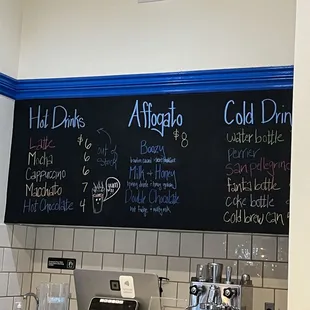 Hot Drinks
Latte 6
Mocha 6
Cappuccino 6
Macchiato 7
Hot Chocolate 4
out of
stock
yum
Affogato
$8
Boozy
Milk + Honey
Double Chocolate
Cold Drin
water bottle
perrier
san pellegrino
fanta bottle
coke bottle
cold brew can